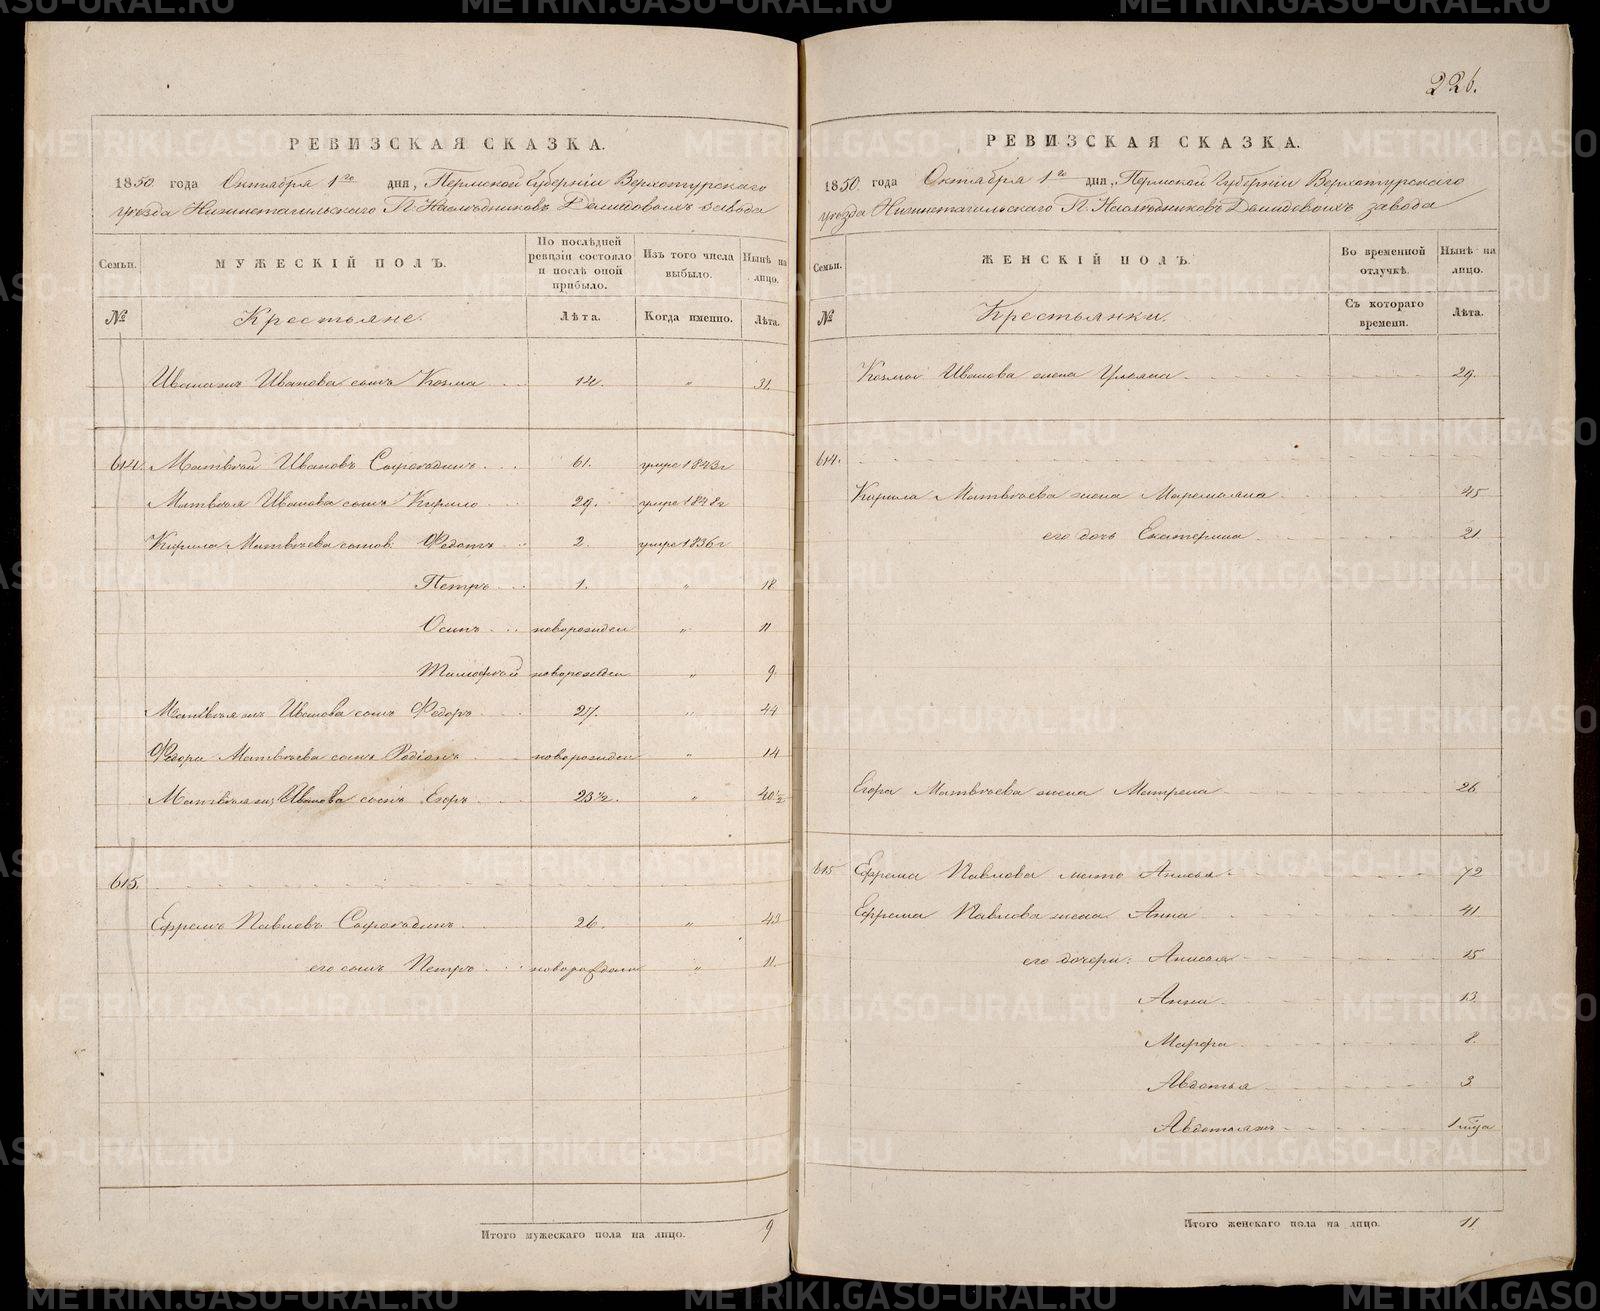 226.
РЕВИЗСКАЯ СКАЗКА.
1850 года Октября 1го дня, Пермской Губерніи Верхотурскаго
уезда Нижнетагильскаго П. Наследниковъ Демидовыхъ завода
Семьи.
МУЖЕСКІЙ ПОЛЪ.
По послѣдней ревизіи состояло и послѣ оной прибыло.
Изъ того числа выбыло.
Нынѣ на лицо.
№ Крестьяне. Лѣта. Когда именно. Лѣта.
Ивана жъ Иванова сынъ Козма 14. " 31.
614. Матвѣй Иванов 61. умре 1843г
Матвѣя Иванова сынъ Кирило 29. умре 1848г
Кирила Матвѣева сыновья: Федотъ 2. умре 1836г
Петръ 1. " 18
Осипъ новорожден " 11
Тимофѣй новорожден " 9.
Матвѣя жъ Иванова сынъ Федоръ 27. " 44
Федора Матвѣева сынъ Родіонъ новорожден " 14
Матвѣя жъ Иванова сынъ Егоръ 23 1/2. " 40 1/2
615.
Ефремъ Павловъ 26. " 43
его сынъ Петръ новорожден " 11.
Итого мужескаго пола на лицо. 9
РЕВИЗСКАЯ СКАЗКА.
1850 года Октября 1го дня, Пермской Губерніи Верхотурскаго
уезда Нижнетагильскаго П. Наследниковъ Демидовыхъ завода
Семьи.
ЖЕНСКІЙ ПОЛЪ.
Во временной отлучкѣ.
Нынѣ на лицо.
№ Крестьянки. Съ котораго времени. Лѣта.
Козмы Иванова жена Ульяна 29.
614.
Кирила Матвѣева жена Маремьяна 45
его дочь Екатерина 21
Егора Матвѣева жена Матрена 26
615 Ефрема Павлова мать Анисья 72
Ефрема Павлова жена Анна 41
его дочери: Анисья 15
Анна 13.
Марфа 8.
Авдотья 3
Авдотья жъ 1
Итого женскаго пола на лицо. 11
METRIKI.GASO-URAL.RU